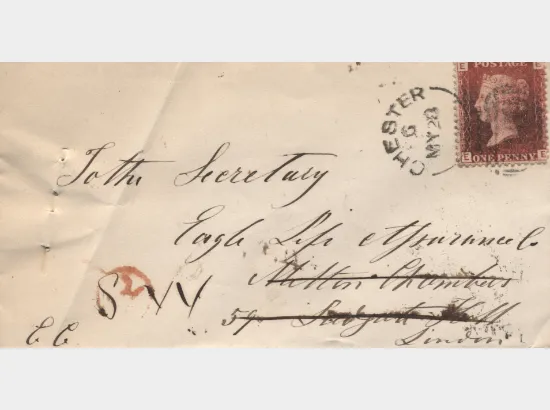 E POSTAGE E
E ONE PENNY E
CHESTER
G
MY 28
To the Secretary
Eagle Life Assurance Co
Milton Chambers
S W
59 Ludgate Hill
London
E.C.